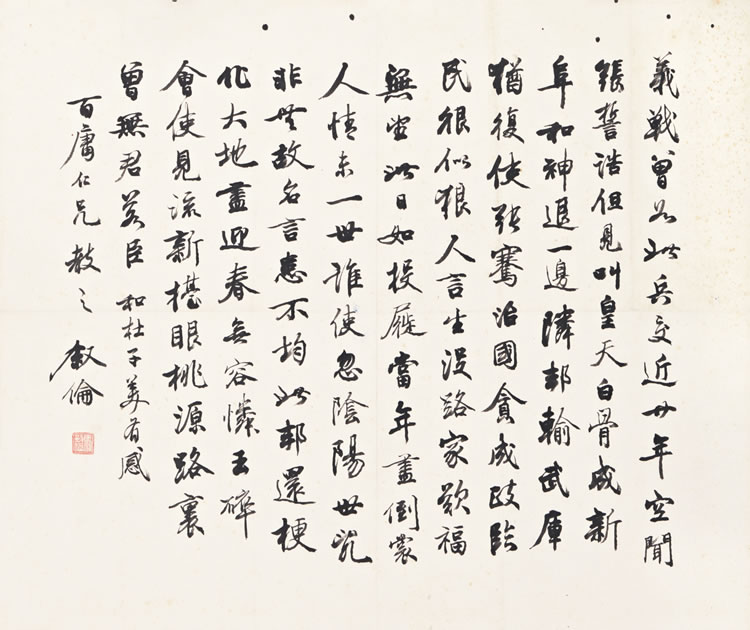 義戰曾如此兵交近廿年空聞
張誓誥但見叫皇天白骨成新
阜和神退一邊隣邦輸武庫
猶復使張騫治國貪成跂臨
民很似狼人言生沒路家歎福
無堂此日如投屣當年盡倒裳
人情未一世誰使忽陰陽世
非無故名言患不均此邦還梗
化大地盡迎春無容憐玉碎
會使見流新擡眼桃源路裏
曾無君若臣 和杜子美有感
百庸仁兄教之 叙倫